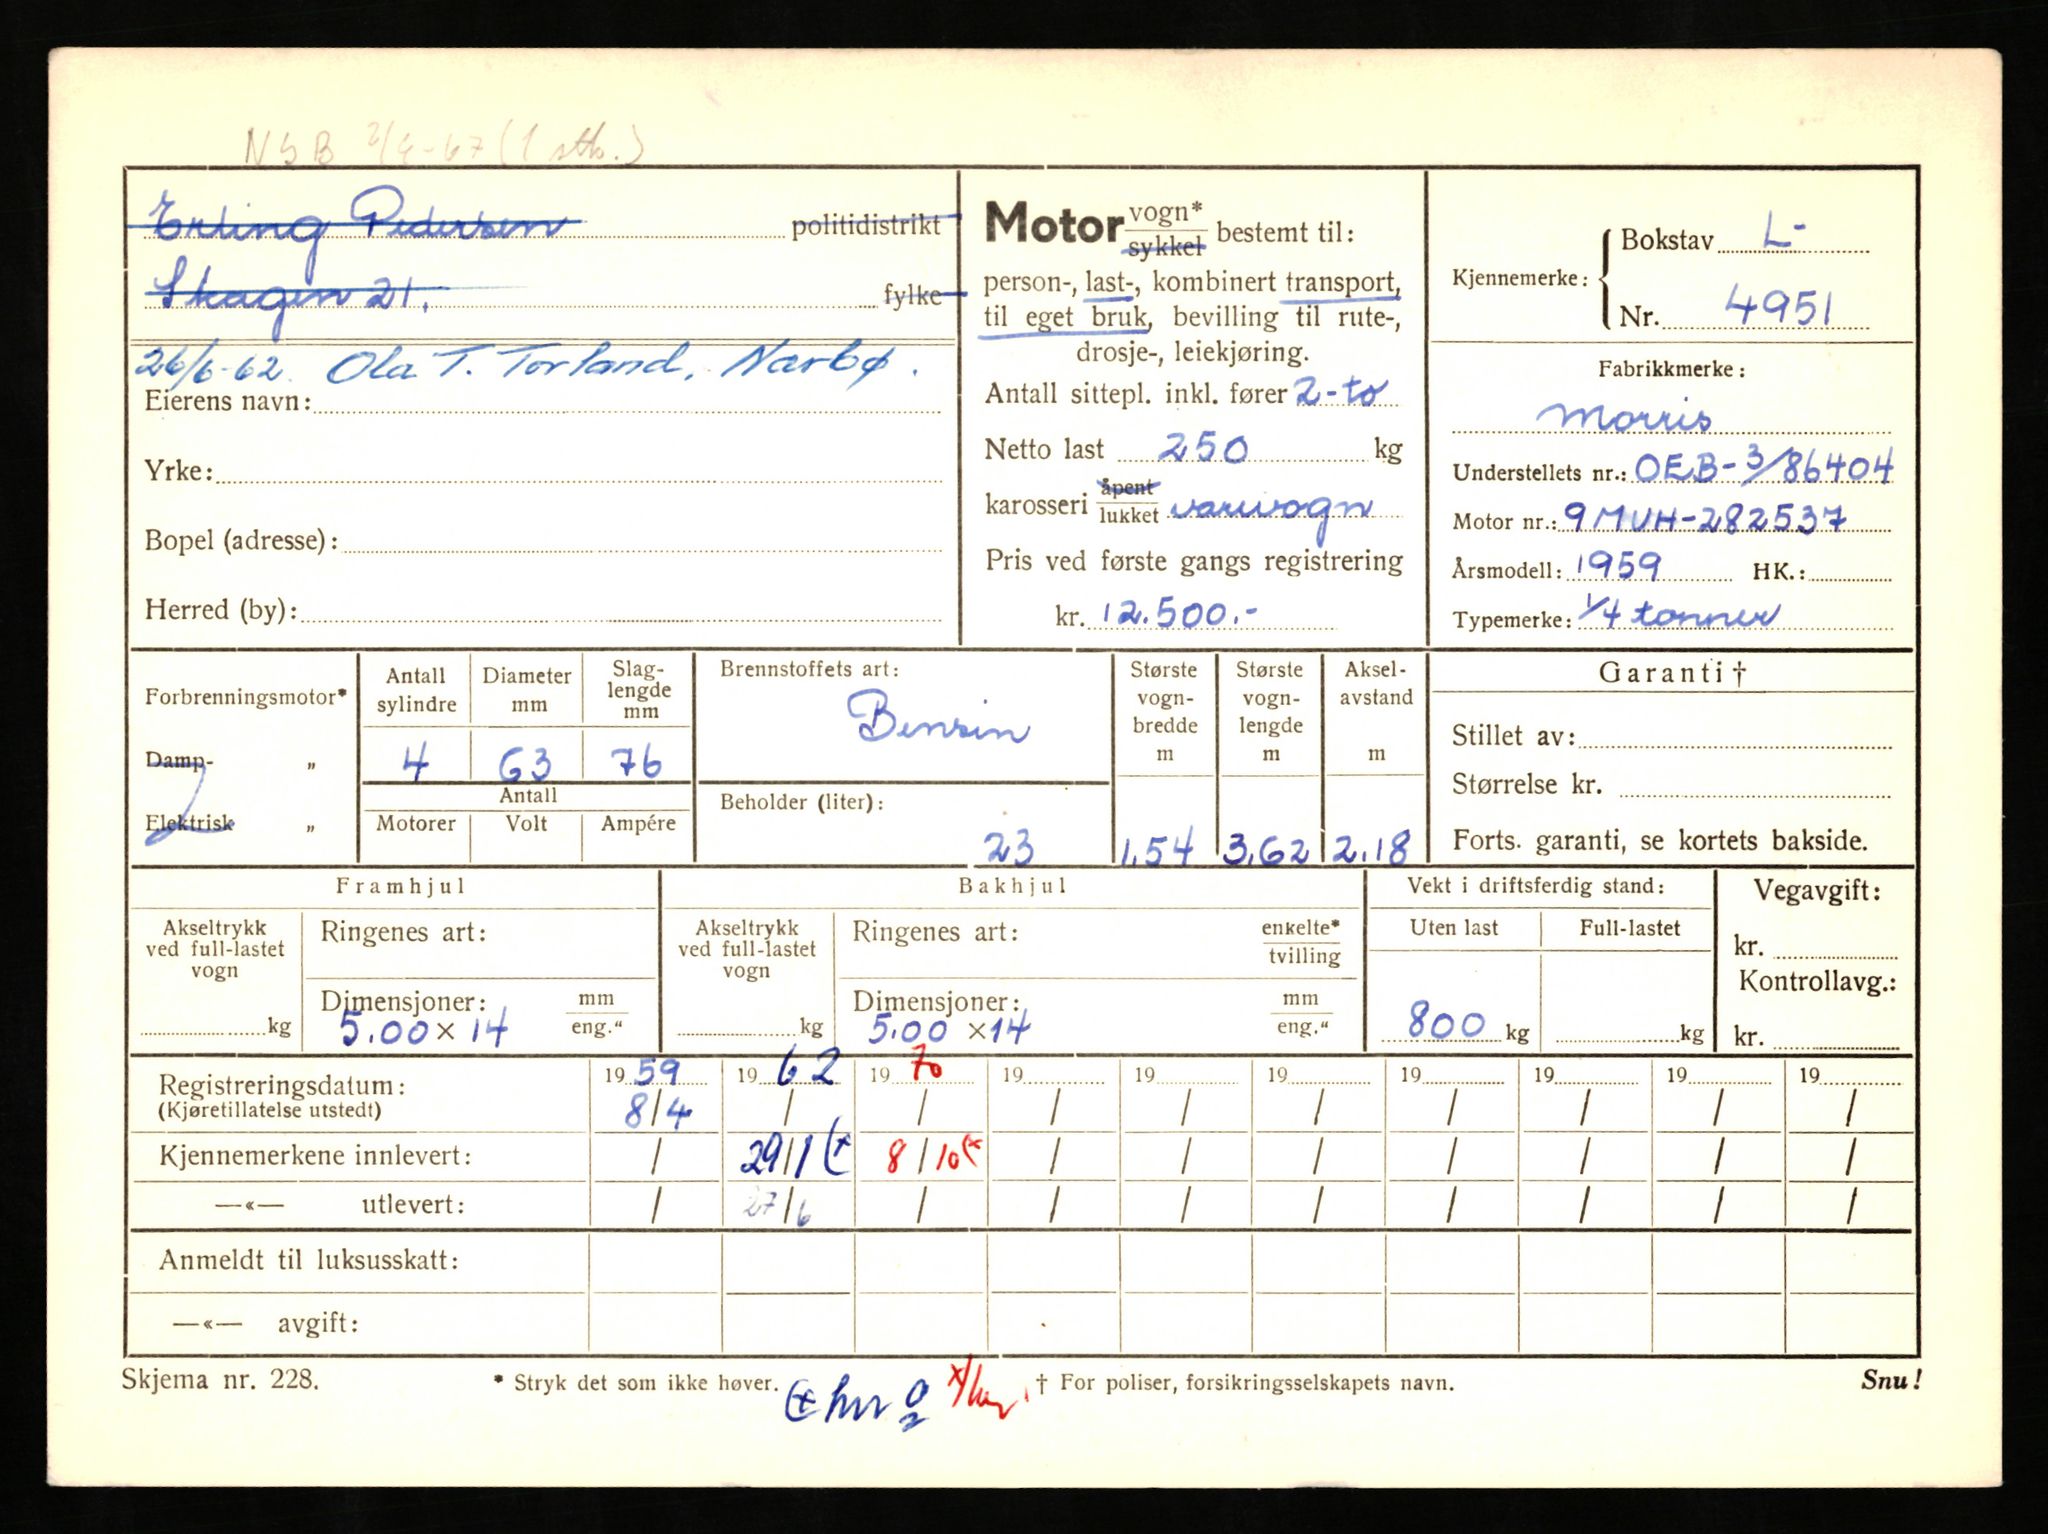 NSB 2/4-67 (1 stk.)
Erling Pedersen politidistrikt
Skagen 21. fylke
26/6-62. Ola T. Torland, Nærbø.
Eierens navn:
Yrke:
Bopel (adresse):
Herred (by):
Motor vogn* sykkel bestemt til:
person-, last-, kombinert transport,
til eget bruk, bevilling til rute-,
drosje-, leiekjøring.
Antall sittepl. inkl. fører 2-to
Netto last 250 kg
karosseri åpent lukket varevogn
Pris ved første gangs registrering
kr. 12.500.-
Kjennemerke: Bokstav L-
Nr. 4951
Fabrikkmerke:
Morris
Understellets nr.: OEB-3/86404
Motor nr.: 9MUH-282537
Årsmodell: 1959 HK.:
Typemerke: 1/4 tonner
Forbrenningsmotor*
Damp- „
Elektrisk „
Antall sylindre 4
Diameter mm 63
Slaglengde mm 76
Antall
Motorer Volt Ampére
Brennstoffets art:
Bensin
Beholder (liter):
23
Største vogn-bredde m 1.54
Største vogn-lengde m 3.62
Aksel-avstand m 2.18
Garanti †
Stillet av:
Størrelse kr.
Forts. garanti, se kortets bakside.
Framhjul
Akseltrykk ved full-lastet vogn kg
Ringenes art:
Dimensjoner: mm eng."
5.00 × 14
Bakhjul
Akseltrykk ved full-lastet vogn kg
Ringenes art: enkelte* tvilling
Dimensjoner: mm eng."
5.00 × 14
Vekt i driftsferdig stand:
Uten last Full-lastet
800 kg kg
Vegavgift:
kr.
Kontrollavg.:
kr.
Registreringsdatum: 1959 1962 1970 19 19 19 19 19 19 19
(Kjøretillatelse utstedt) 8/4 / / / / / / / / /
Kjennemerkene innlevert: / 29/1 (+ 8/10 (× / / / / / / /
—«— utlevert: / 27/6 / / / / / / / /
Anmeldt til luksusskatt:
—«— avgift:
Skjema nr. 228. * Stryk det som ikke høver. † For poliser, forsikringsselskapets navn. Snu!